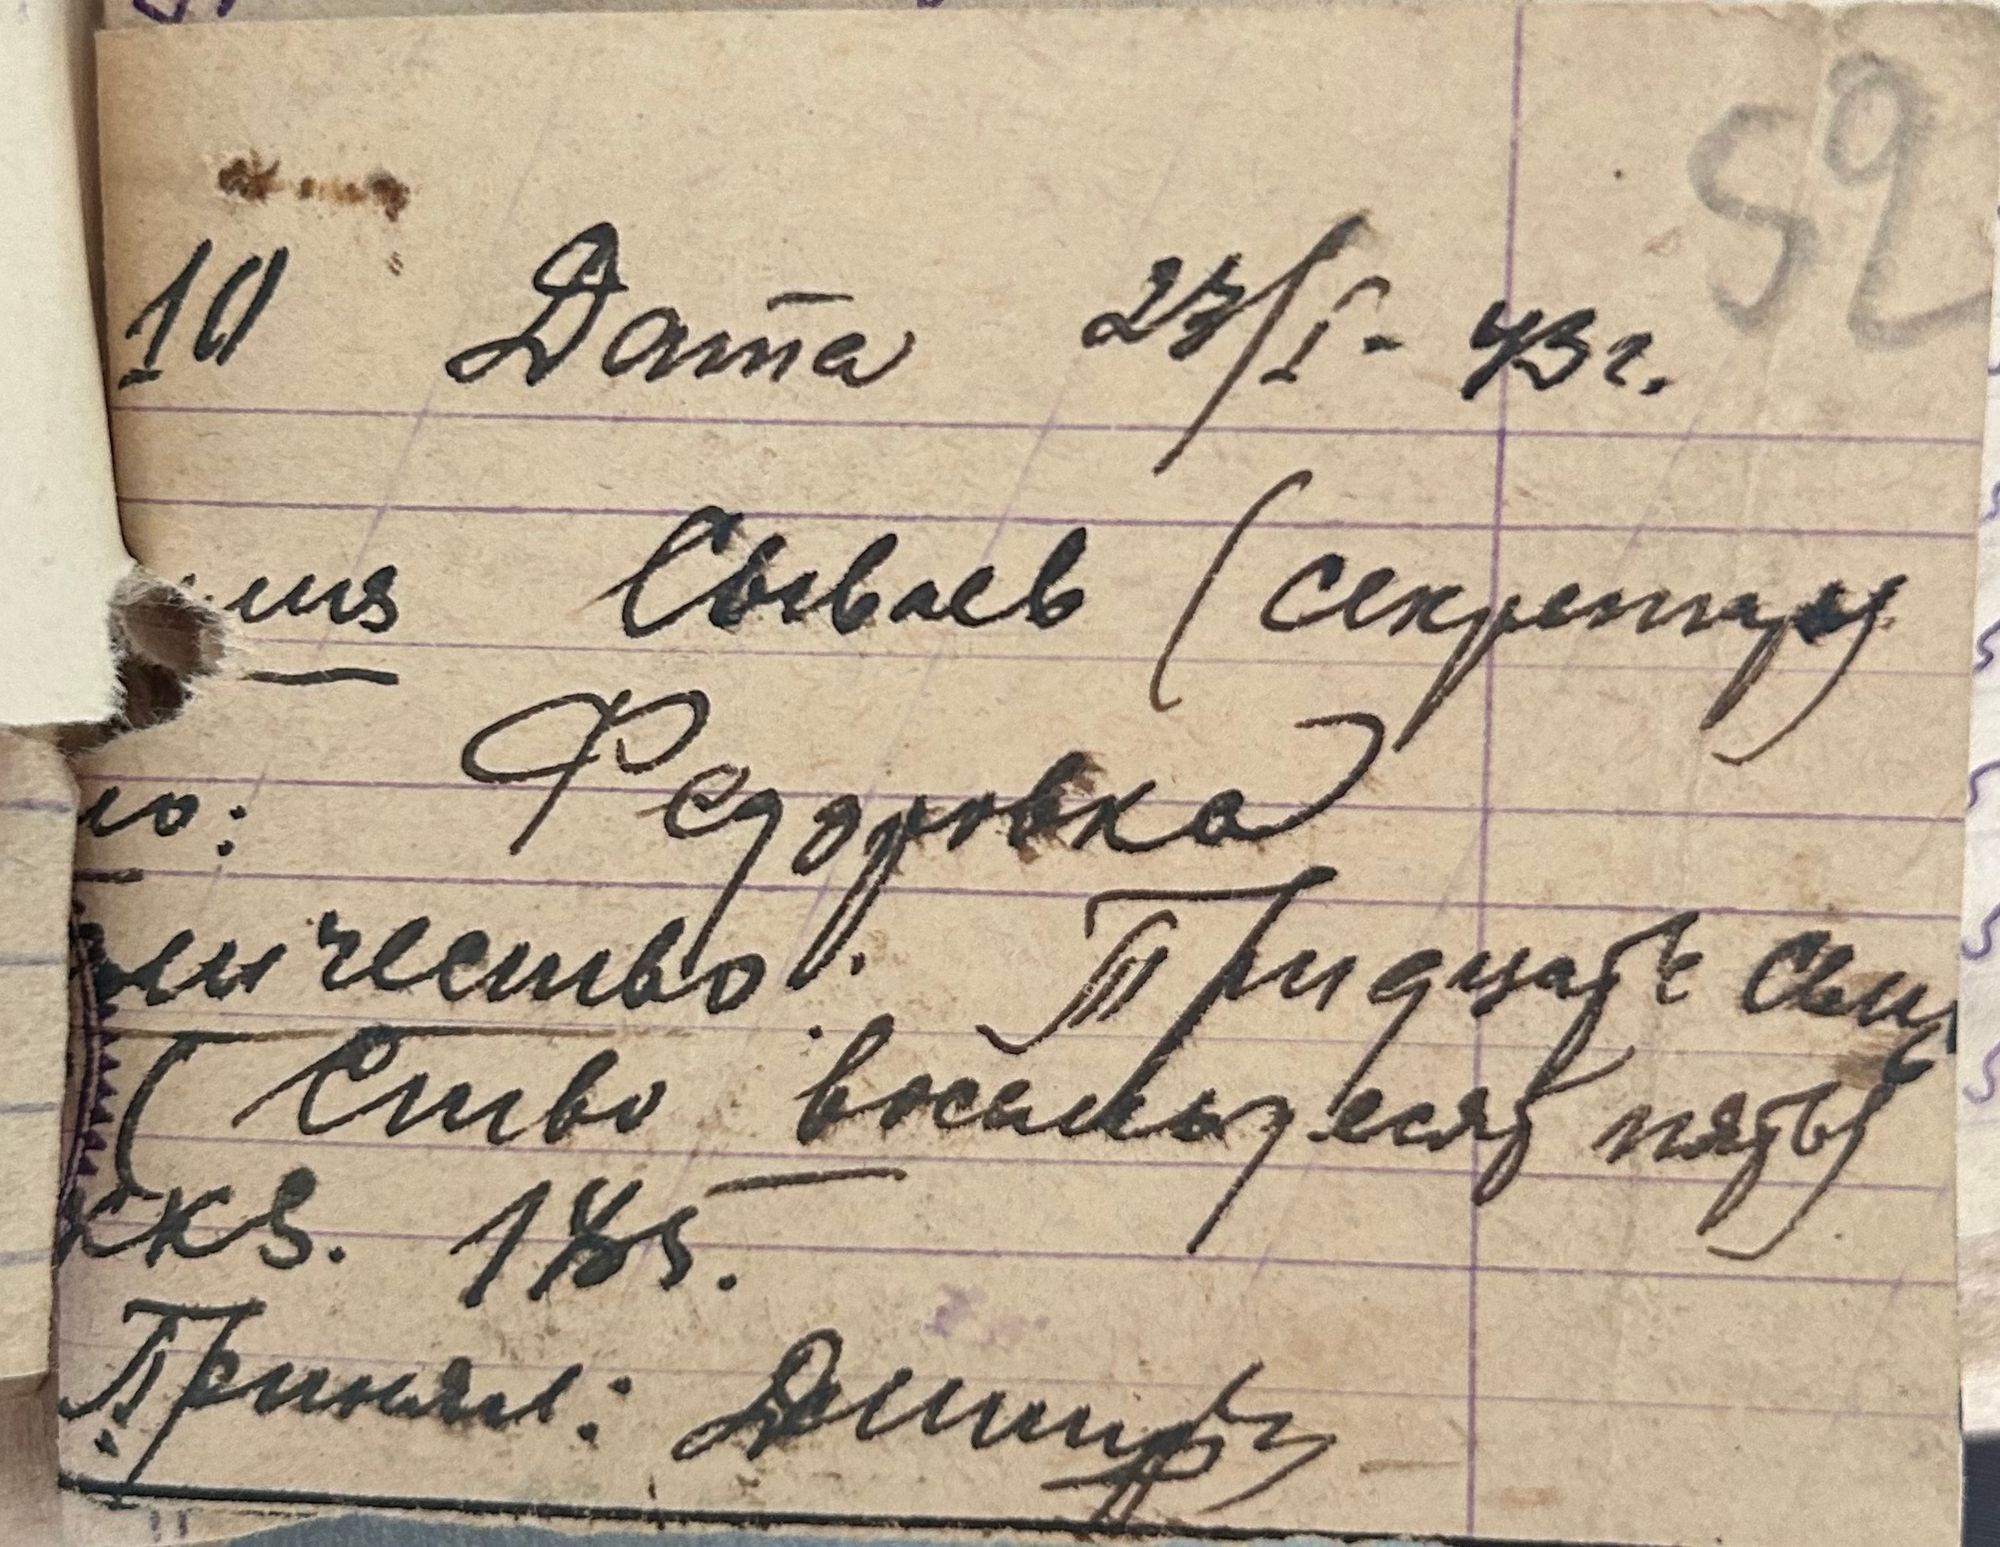 52
10 Дата 27/I - 43 г.
мия Сываев (секретарь
ло: Федоровка
личество: Тридцать семь
(Ство восемьдесят пять)
экз. 185.
Принял: